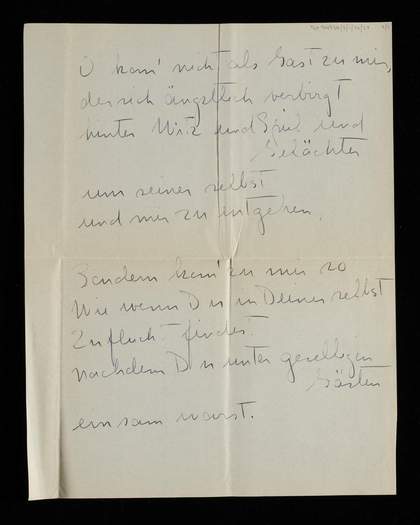 O komm' nicht als Gast zu mir,
der sich ängstlich verbirgt
hinter Witz und Spiel und
Gelächter
um seiner selbst
und mir zu entgehen,
Sondern komm' zu mir so
Wie wenn Du in Deiner selbst
Zuflucht findest
nachdem Du unter geselligen
Gästen
einsam warst.